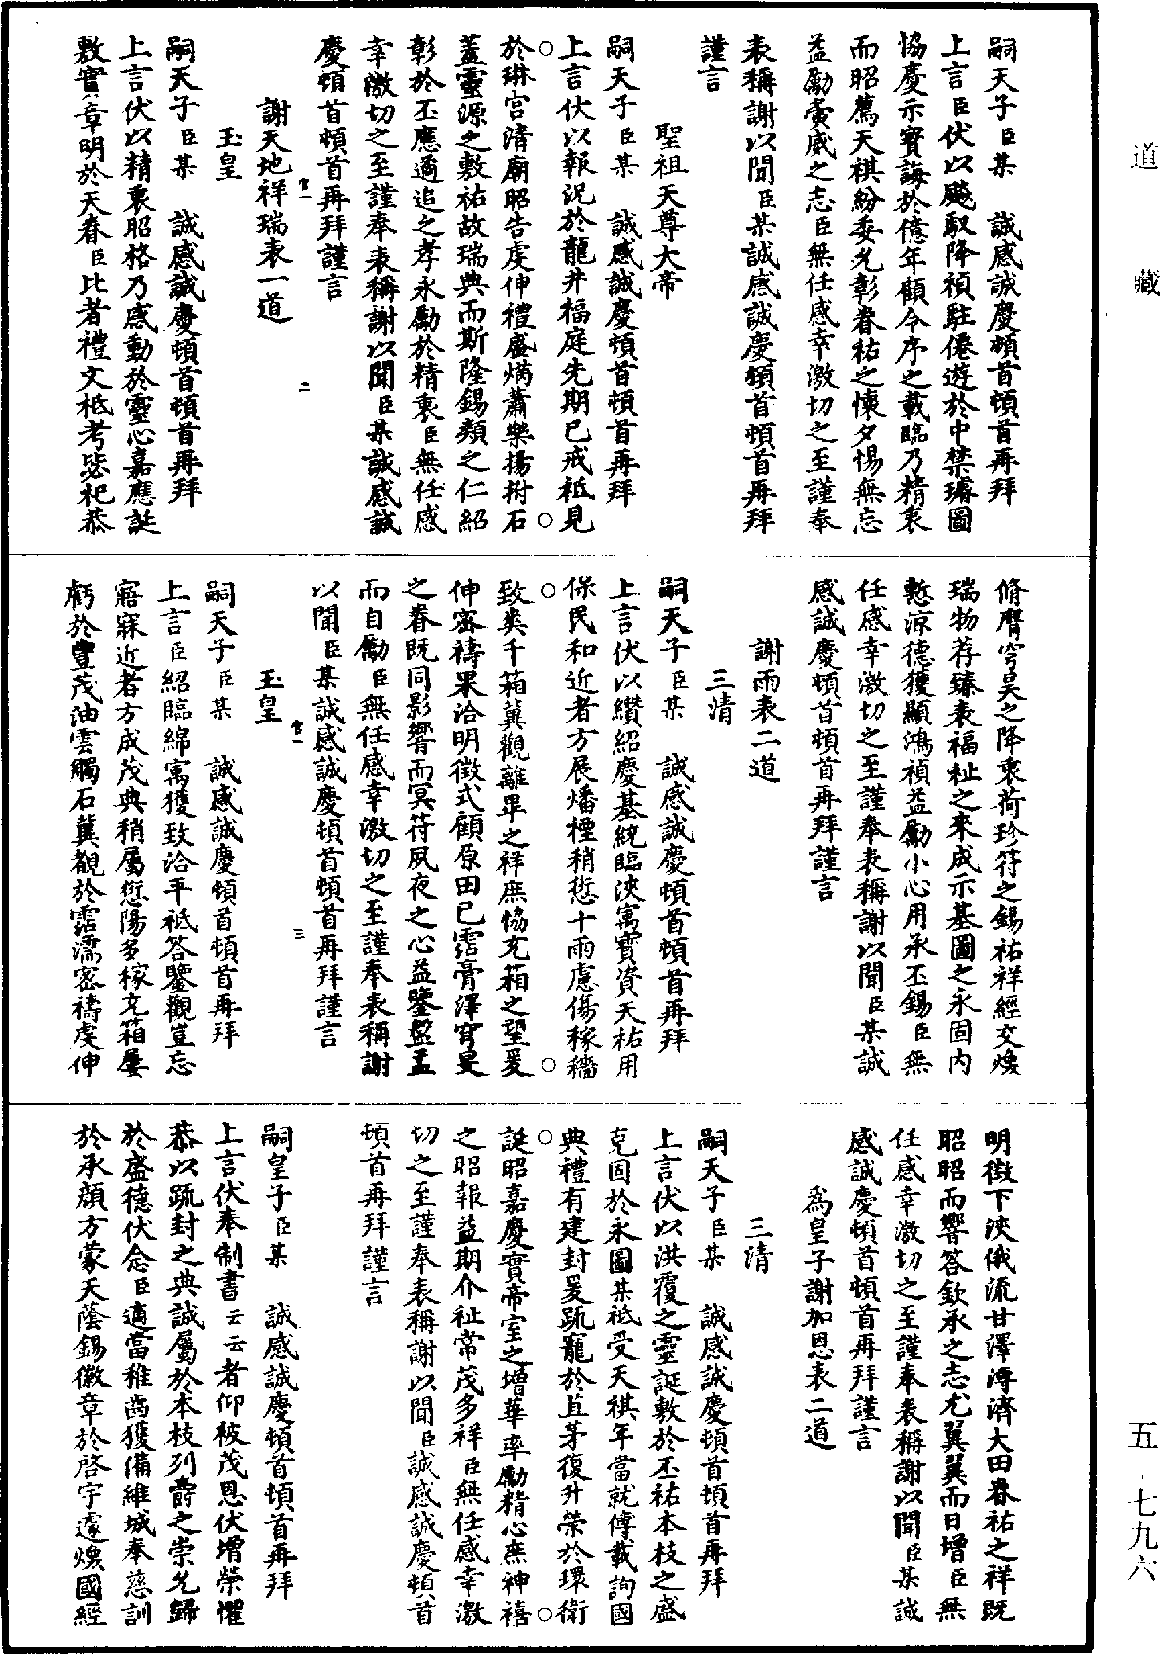 道藏
五-七九六
嗣天子臣某　誠感誠慶頓首頓首再拜
上言臣伏以飈馭降禎駐僊遊於中禁璿圖
協慶示寶誨於億年顧令序之載臨乃精衷
而昭薦天祺紛委允彰眷祐之懷夕惕無忘
益勵夤威之志臣無任感幸激切之至謹奉
表稱謝以聞臣某誠感誠慶頓首頓首再拜
謹言
聖祖天尊大帝
嗣天子臣某　誠感誠慶頓首頓首再拜
上言伏以報況於龍井福庭先期已戒祗見
於琳宮清廟昭告虔伸禮盛焫蕭樂揚拊石
蓋靈源之敷祐故瑞典而斯隆錫類之仁紹
彰於丕應遹追之孝永勵於精衷臣無任感
幸激切之至謹奉表稱謝以聞臣某誠感誠
慶頓首頓首再拜謹言
謝天地祥瑞表一道
玉皇
嗣天子臣某　誠感誠慶頓首頓首再拜
上言伏以精衷昭格乃感動於靈心嘉應誕
敷實章明於天眷臣比者禮文祗考毖祀恭
脩膺穹昊之降衷荷珍符之錫祐祥經交煥
瑞物荐臻表福祉之來成示基圖之永固內
慙涼德獲顯鴻禎益勵小心用承丕錫臣無
任感幸激切之至謹奉表稱謝以聞臣某誠
感誠慶頓首頓首再拜謹言
謝雨表二道
三清
嗣天子臣某　誠感誠慶頓首頓首再拜
上言伏以纘紹慶基統臨浹寓寶資天祐用
保民和近者方展燔禋稍愆十雨慮傷稼穡
致奏千箱冀觀離畢之祥庶協充箱之望爰
伸密禱果洽明徵式顧原田已霑膏澤穹旻
之眷既同影響而冥符夙夜之心益鑒盤盂
而自勵臣無任感幸激切之至謹奉表稱謝
以聞臣某誠感誠慶頓首頓首再拜謹言
玉皇
嗣天子臣某　誠感誠慶頓首頓首再拜
上言臣紹臨綿寓獲致洽平祗答鑒觀豈忘
寤寐近者方成茂典稍屬愆陽多稼充箱屢
虧於豐茂油雲觸石冀覩於霑濡密禱虔伸
明徵下浹俄流甘澤溥濟大田眷祐之祥既
昭昭而響答欽承之志尤翼翼而日增臣無
任感幸激切之至謹奉表稱謝以聞臣某誠
感誠慶頓首頓首再拜謹言
為皇子謝加恩表二道
三清
嗣天子臣某　誠感誠慶頓首頓首再拜
上言伏以洪覆之靈誕敷於丕祐本枝之盛
克固於永圖某祗受天祺年當就傅載詢國
典禮有建封爰疏寵於苴茅復升榮於環衛
誕昭嘉慶實帝室之增華率勵精心庶神禧
之昭報益期介祉常茂多祥臣無任感幸激
切之至謹奉表稱謝以聞臣誠感誠慶頓首
頓首再拜謹言
嗣皇子臣某　誠感誠慶頓首頓首再拜
上言伏奉制書云云者仰被茂恩伏增榮懼
恭以疏封之典誠屬於本枝列爵之崇允歸
於盛德伏念臣適當稚齒獲備維城奉慈訓
於承顏方蒙天蔭錫徽章於啓宇遽煥國經